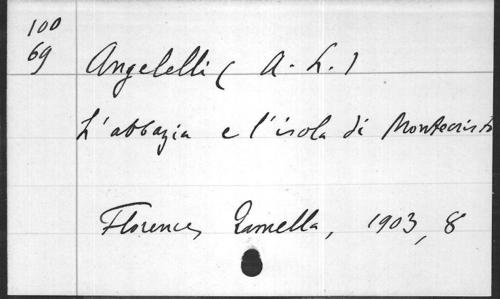 100
69
Angelelli (A. L.)
L'abbazia e l'isola di Montecristo
Florence, 1903, 8